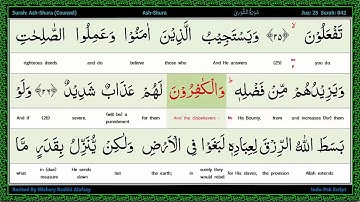 Surah: Ash-Shura (Counsel) Ash-Shura سُوْرَةُ الشُّوْرٰى Juz: 25 Surah: 042
تَفْعَلُوْنَ ﴿٢٥﴾ وَيَسْتَجِيْبُ الَّذِيْنَ اٰمَنُوْا وَعَمِلُوا الصّٰلِحٰتِ
you do. (25) And He answers those who believe and do righteous deeds
وَيَزِيْدُهُمْ مِّنْ فَضْلِهٖ ؕ وَالْكٰفِرُوْنَ لَهُمْ عَذَابٌ شَدِيْدٌ ﴿٢٦﴾ وَلَوْ
and increases (for) them from His Bounty. And the disbelievers - for them (will be) a punishment severe. (26) And if
بَسَطَ اللّٰهُ الرِّزْقَ لِعِبَادِهٖ لَبَغَوْا فِى الْاَرْضِ وَلٰكِنْ يُّنَزِّلُ بِقَدَرٍ مَّا
Allah extends the provision for His slaves, surely they would rebel in the earth. but He sends down in (due) measure what
Recited By Mishary Rashid Alafasy Indo-Pak Script